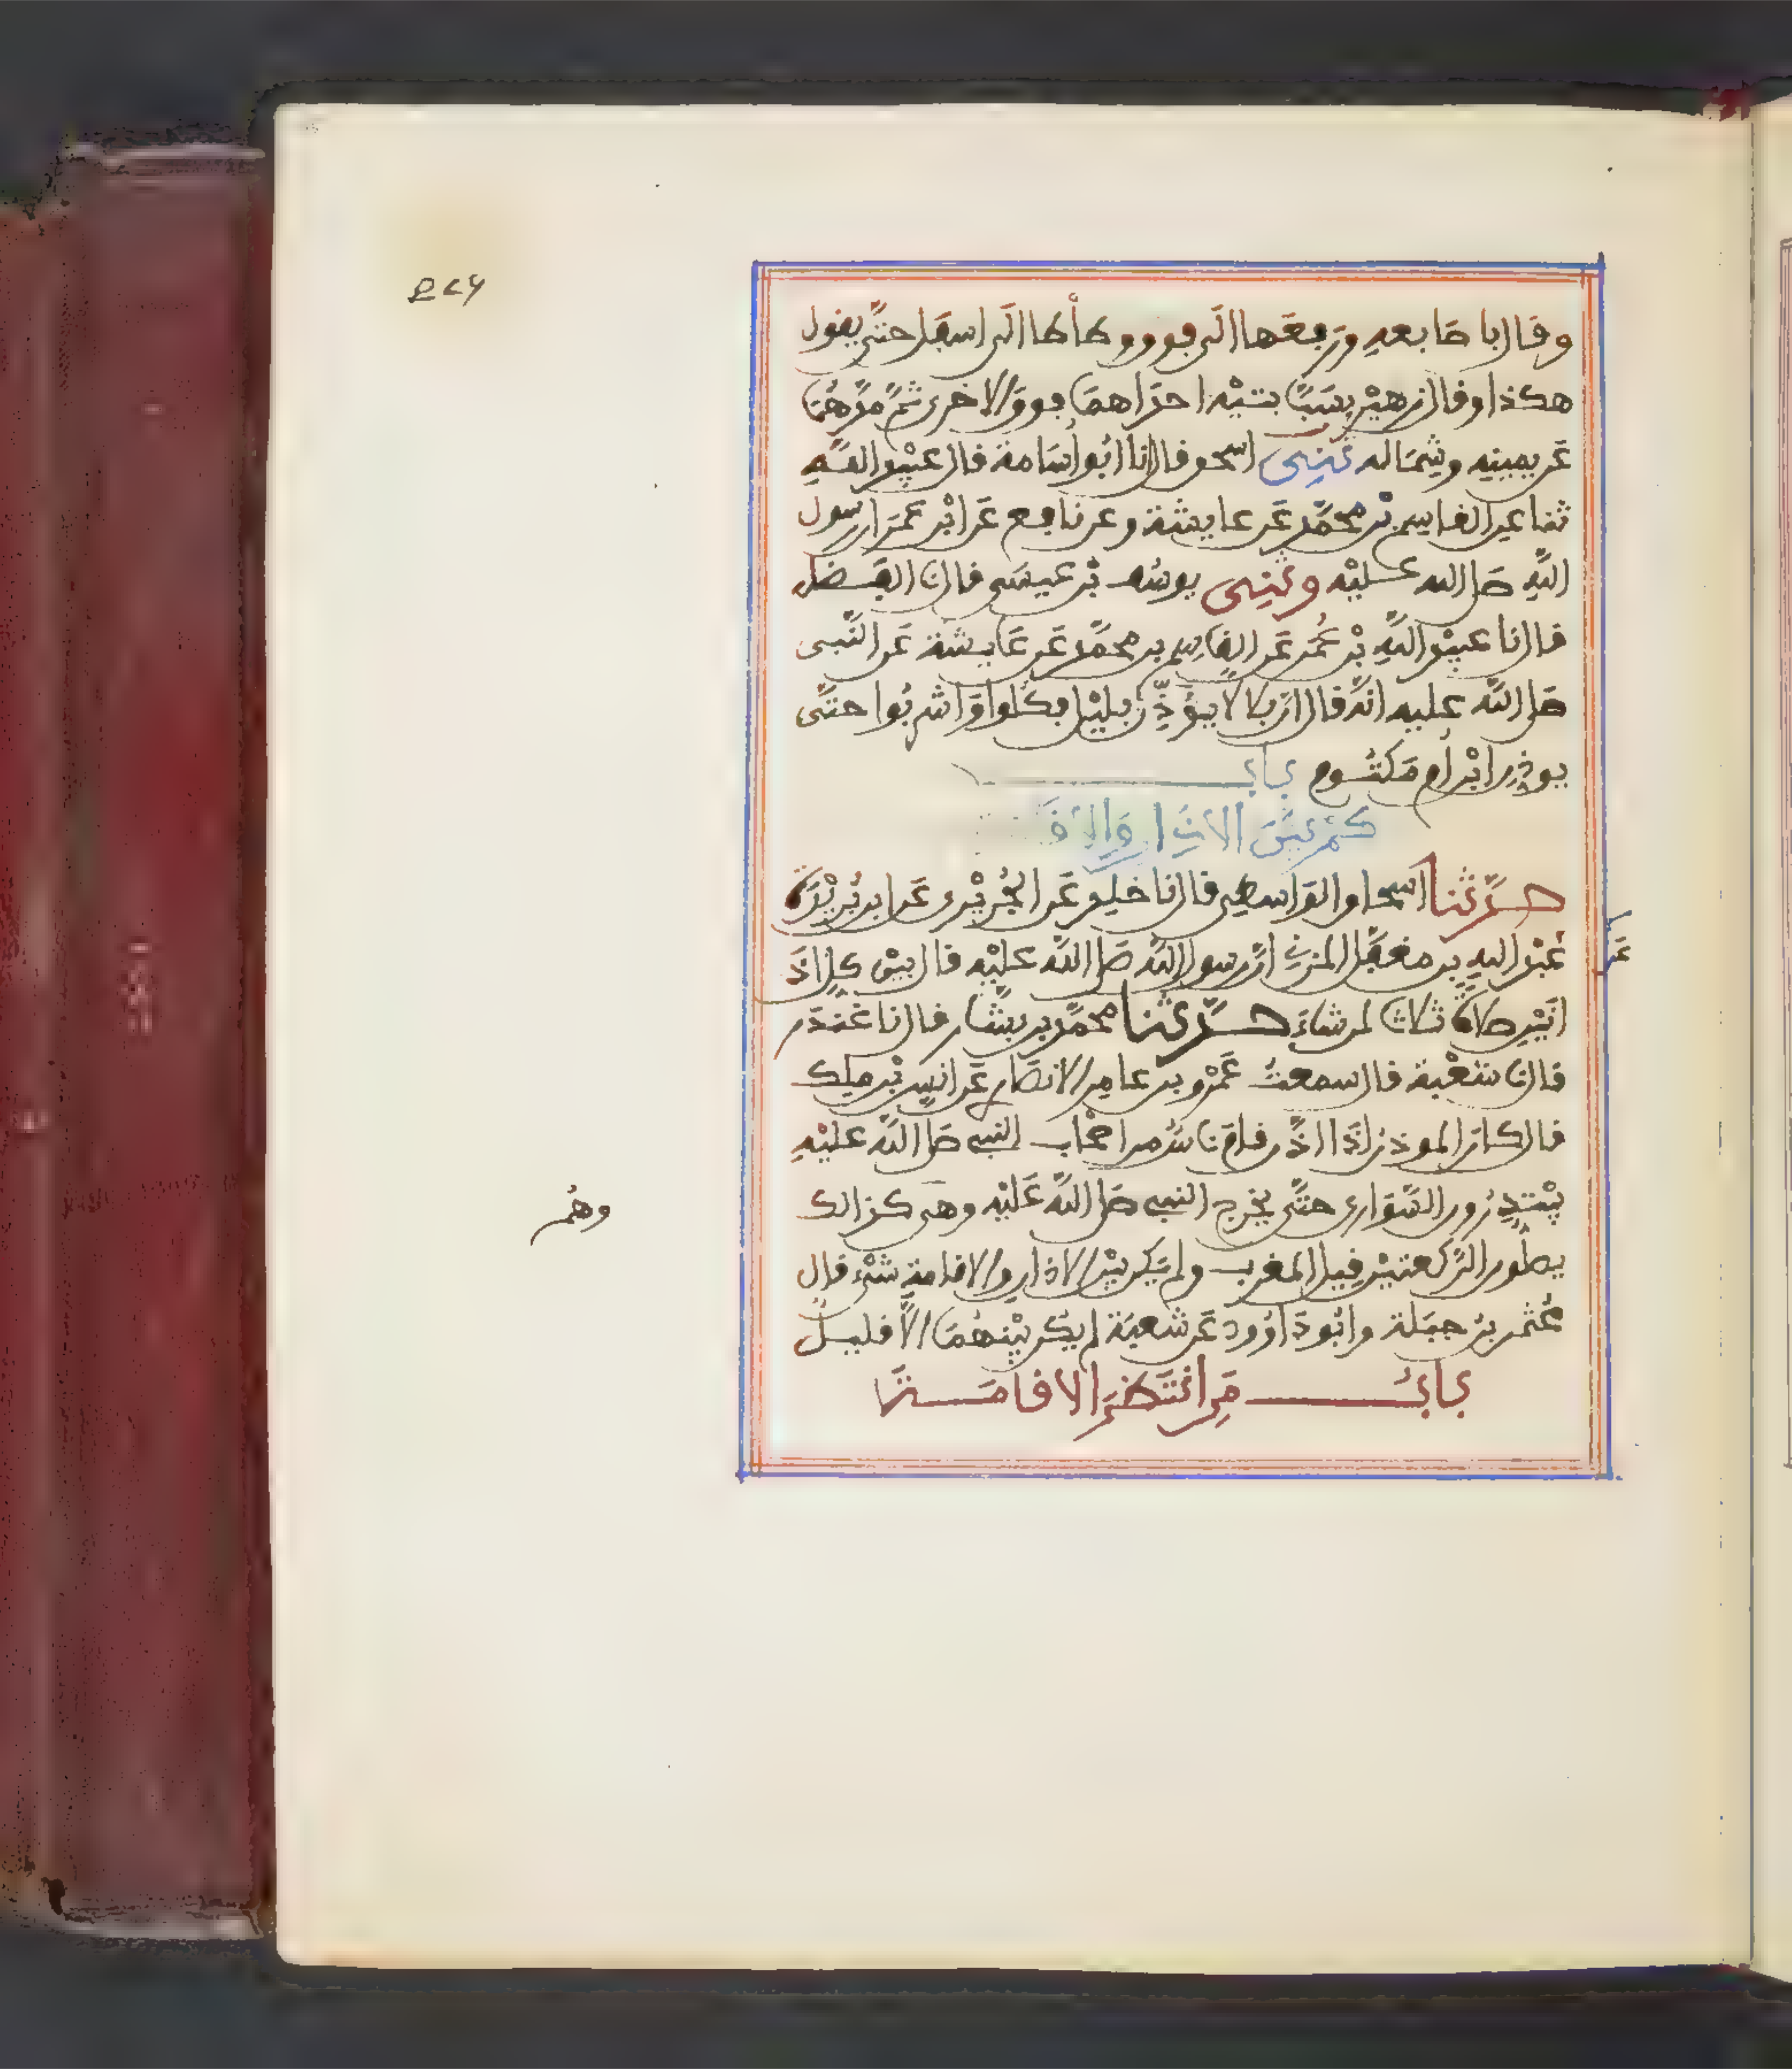 وقال باصابعه ورفعها الى فوق وطأطأ الى اسفل حتى يقول
هكذا وقال زهير بسبابتيه احداهما فوق الاخرى ثم مدهما
عن يمينه وشماله ثنى اسحق قال انا ابو اسامة قال عبيد الله
ثنا عن القاسم بن محمد عن عايشة وعن نافع عن ابن عمر ان رسول
الله صلى الله عليه وثنى يوسف بن عيسى قال نا الفضل
قال نا عبيد الله بن عمر عن القاسم بن محمد عن عايشة عن النبي
صلى الله عليه انه قال ان بلالا يؤذن بليل فكلوا واشربوا حتى
يوذن ابن ام مكتوم باب
كم بين الاذان والاقا
حدثنا اسحاق الواسطى قال نا خلد عن الجريرى عن ابن بريدة
عن
عبد الله بن مغفل المزنى ان رسول الله صلى الله عليه قال بين كل اذ
انين صلاة ثلاثا لمن شاء حدثنا محمد بن بشار قال نا غندر
قال نا شعبة قال سمعت عمرو بن عامر الانصارى عن انس بن ملك
قال كان الموذن اذا اذن قام ناس من اصحاب النبي صلى الله عليه
يبتدرون السوارى حتى يخرج النبي صلى الله عليه وهى كذالك
وهم
يصلون الركعتين قبل المغرب ولم يكن بين الاذان والاقامة شىء قال
عثمن بن جبلة وابو داوود عن شعبة لم يكن بينهما الا قليل
باب من انتظر الاقامة